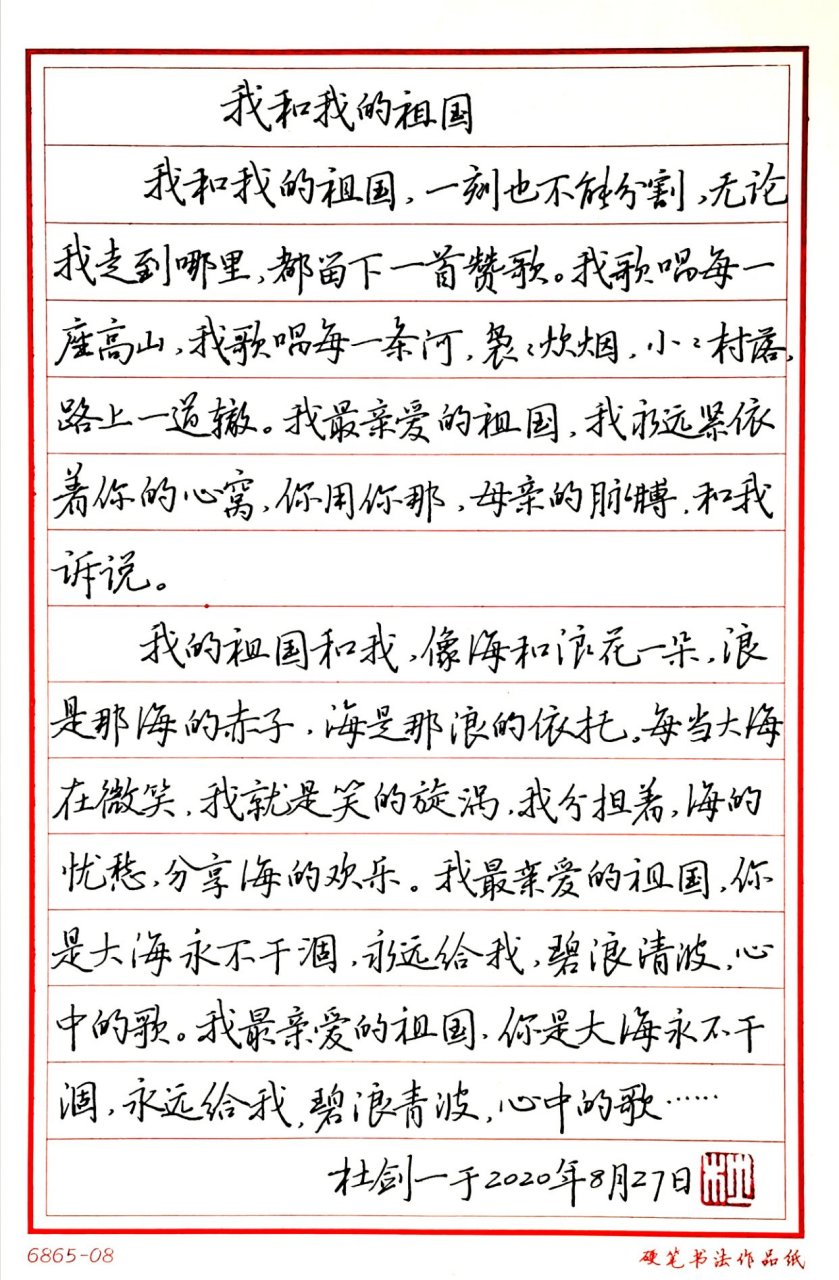 我和我的祖国
我和我的祖国，一刻也不能分割，无论
我走到哪里，都留下一首赞歌。我歌唱每一
座高山，我歌唱每一条河，袅〻炊烟，小〻村落，
路上一道辙。我最亲爱的祖国，我永远紧依
着你的心窝，你用你那，母亲的脉膊，和我
诉说。
我的祖国和我，像海和浪花一朵，浪
是那海的赤子，海是那浪的依托。每当大海
在微笑，我就是笑的旋涡，我分担着，海的
忧愁，分享海的欢乐。我最亲爱的祖国，你
是大海永不干涸，永远给我，碧浪清波，心
中的歌。我最亲爱的祖国，你是大海永不干
涸，永远给我，碧浪青波，心中的歌……
杜剑一于2020年8月27日
6865-08
硬笔书法作品纸